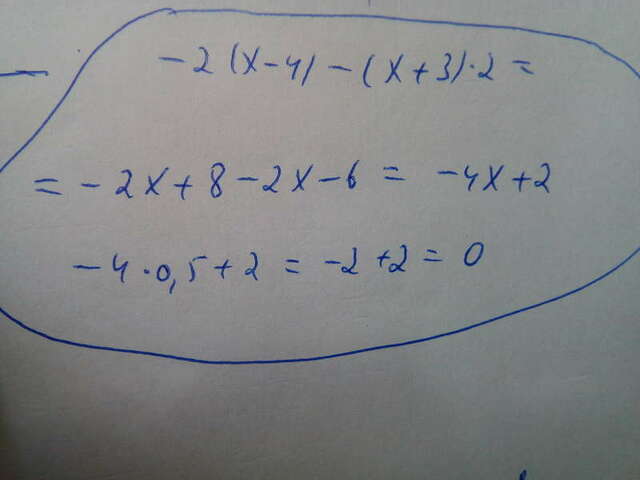 -2(x-4)-(x+3)·2=
=-2x+8-2x-6=-4x+2
-4·0,5+2=-2+2=0